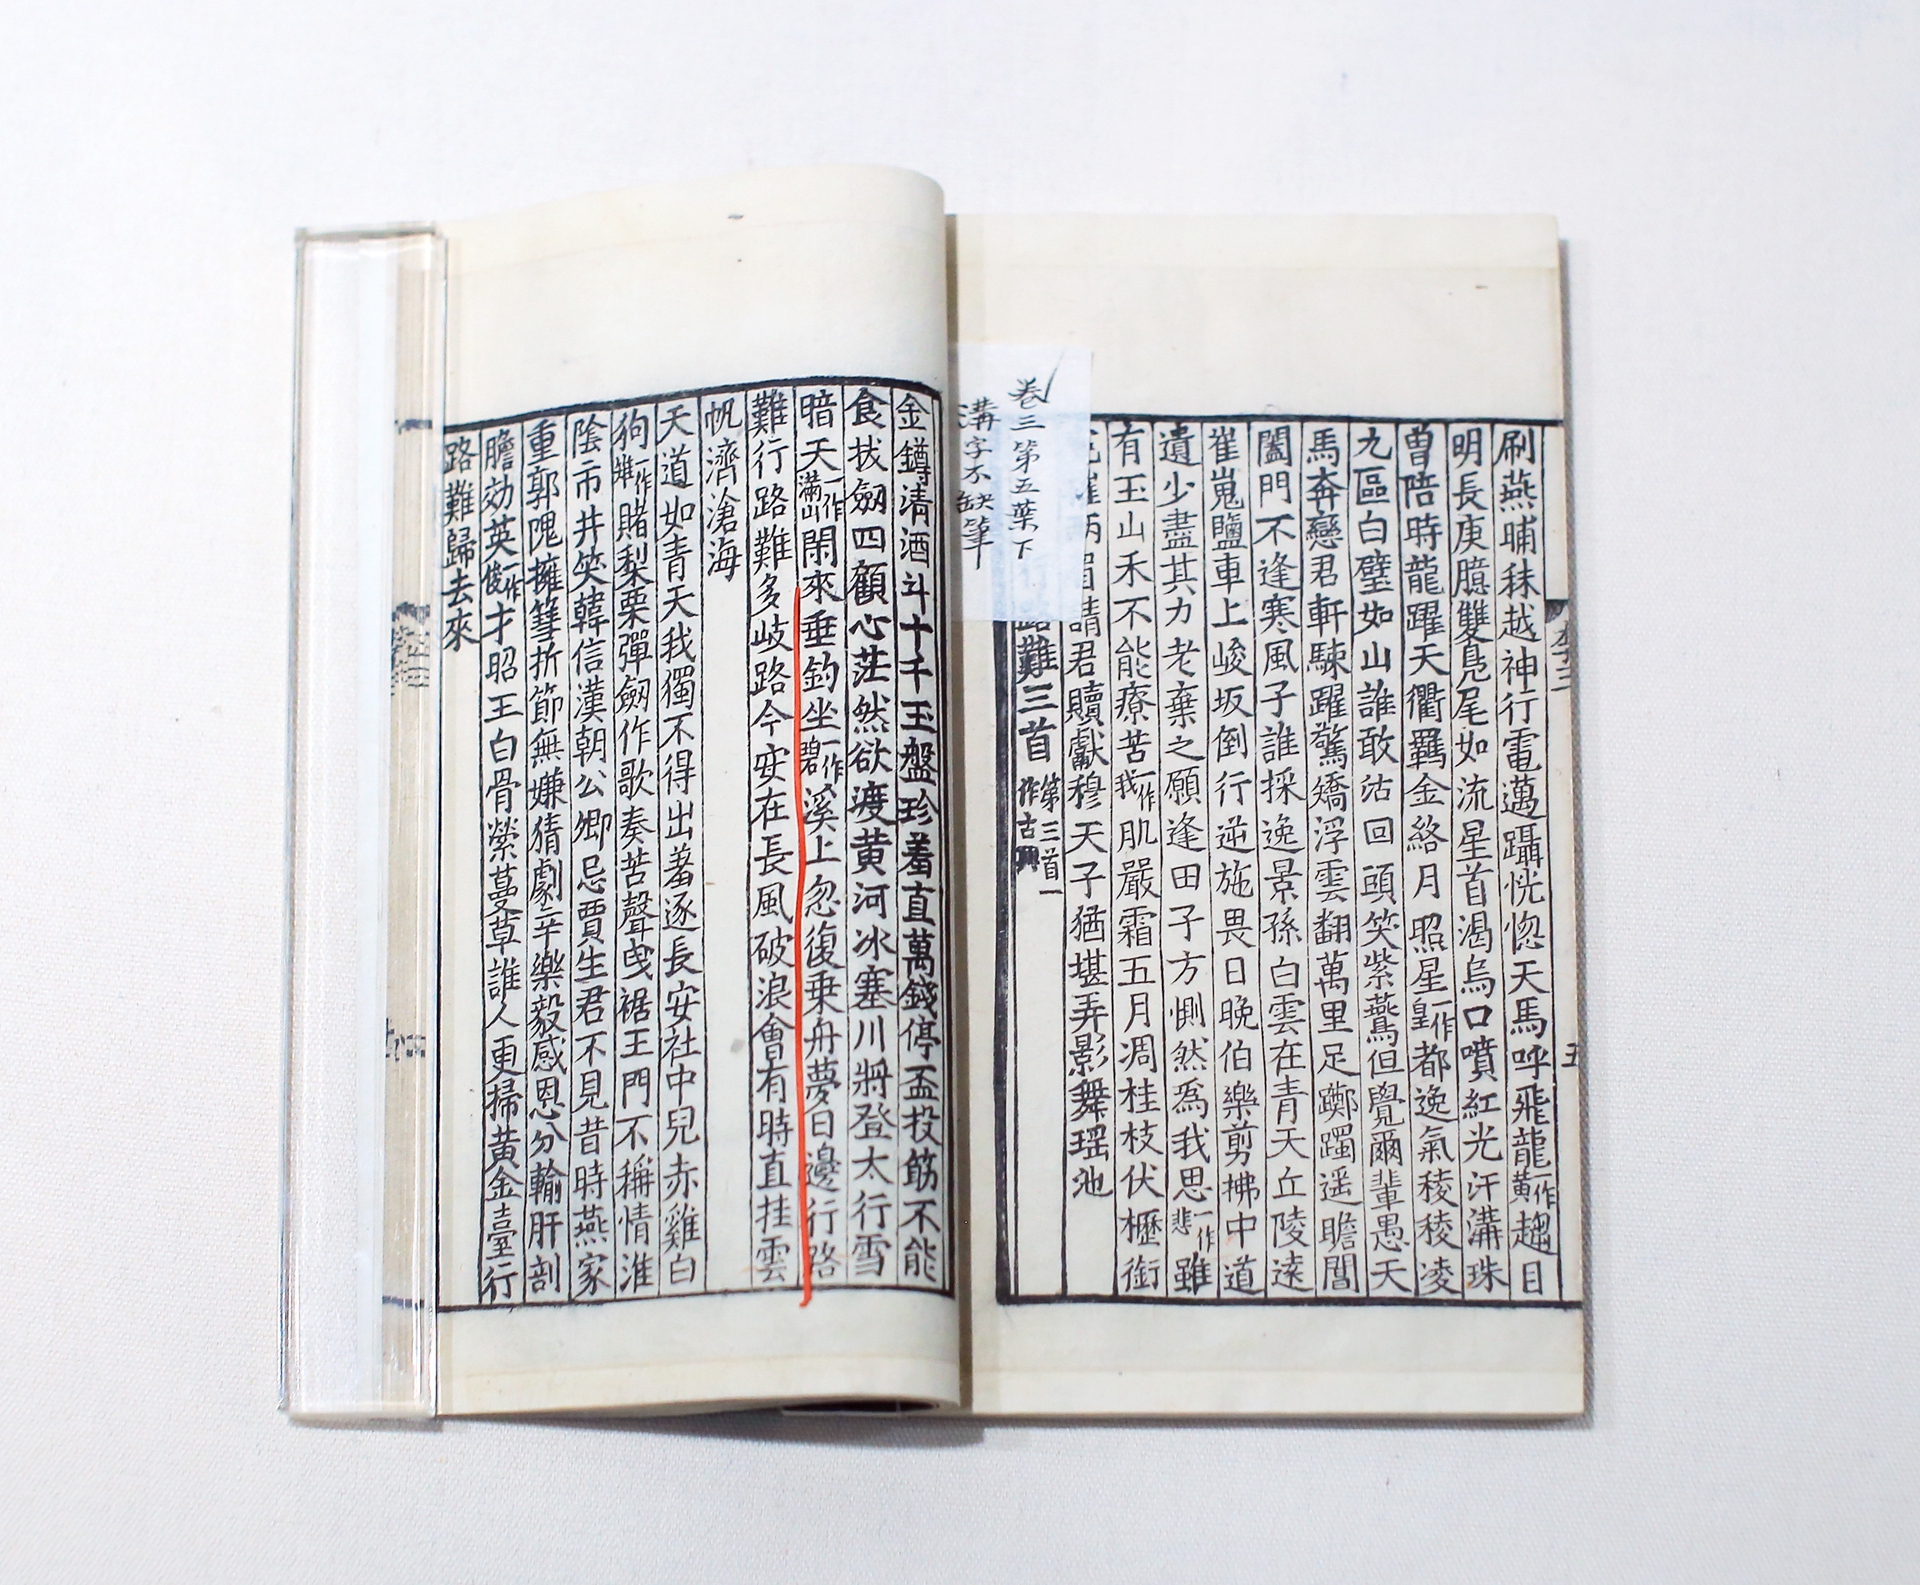 刷燕晡秣越神行電邁躡恍惚天馬呼飛龍一作黃趨目
明長庚臆雙鳧尾如流星首渴烏口噴紅光汗溝珠
曾陪時龍躍天衢羈金絡月照星一作皇都逸氣稜稜凌
九區白璧如山誰敢沽回頭笑紫鷰但覺爾輩愚天
馬奔戀君軒駷躍驚矯浮雲翻萬里足躑躅遥瞻閶
闔門不逢寒風子誰採逸景孫白雲在青天丘陵遠
崔嵬鹽車上峻坂倒行逆施畏日晚伯樂剪拂中道
遺少盡其力老棄之願逢田子方惻然爲我思一作悲雖
有玉山禾不能療苦一作我肌嚴霜五月凋桂枝伏櫪銜
請君贖獻穆天子猶堪弄影舞瑶池
路難三首第三首一作古興
卷三第五葉下
溝字不缺筆
五
金鐏清酒斗十千玉盤珍羞直萬錢停盃投筯不能
食拔劒四顧心茫然欲渡黄河冰塞川將登太行雪
暗天一作滿山閑來垂釣坐一作碧溪上忽復乗舟夢日邊行路
難行路難多岐路今安在長風破浪會有時直挂雲
帆濟滄海
天道如青天我獨不得出羞逐長安社中兒赤雞白
狗一作雉賭梨栗彈劒作歌奏苦聲曵裾王門不稱情淮
陰市井笑韓信漢朝公卿忌賈生君不見昔時燕家
重郭隗擁篲折節無嫌猜劇辛樂毅感恩分輸肝剖
膽効英一作俊才昭王白骨縈蔓草誰人更掃黄金臺行
路難歸去來